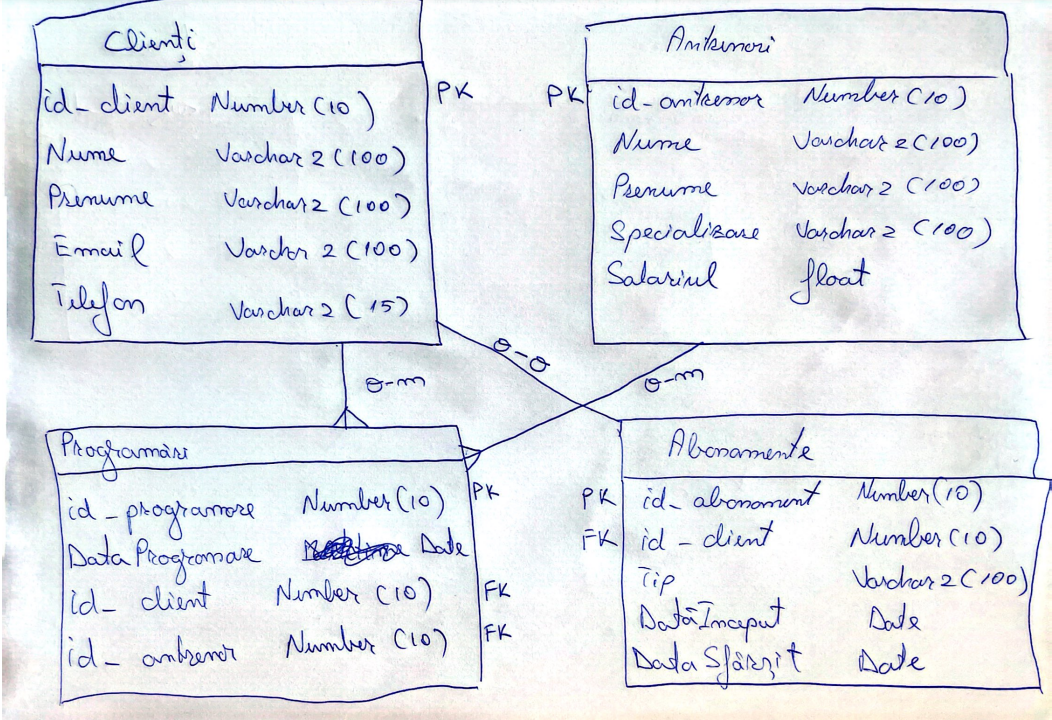 Clienți
id_client Number(10) PK
Nume Varchar2(100)
Prenume Varchar2(100)
Email Varchr2(100)
Telefon Varchar2(15)
Antrenori
PK id_antrenor Number(10)
Nume Varchar2(100)
Prenume Varchar2(100)
Specializare Varchar2(100)
Salariul float
o-m
o-o
o-m
Programări
id_programare Number(10) PK
Data Programare Date
id_client Number(10) FK
id_antrenor Number(10) FK
Abonamente
PK id_abonament Number(10)
FK id_client Number(10)
Tip Varchar2(100)
DatăInceput Date
Data Sfârșit Date